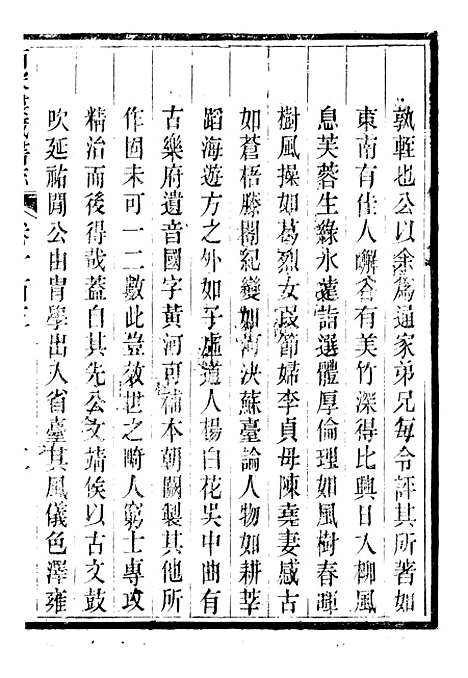 孰輊也公以余為通家弟兄每令評其所著如
東南有佳人嶰谷有美竹深得比興日入柳風
息芙蓉生綠水蓮詣選體厚倫理如風樹春暉
樹風操如葛烈女段節婦李貞母陳堯妻感古
如蒼梧滕閣紀變如河決蘇臺論人物如耕莘
蹈海遊方之外如子虛道人楊白花吳中曲有
古樂府遺音國字黃河司補本朝闕製其他所
作固未可一二數此豈效世之畸人窮士專攻
精治而後得哉蓋自其先公文靖俟以古文鼓
吹延祐間公由胄學出入省臺其風儀色澤雍